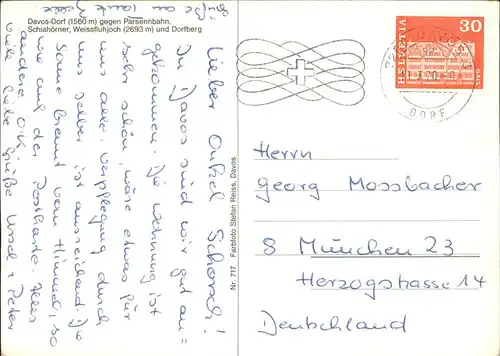 Davos-Dorf (1560 m) gegen Parsennbahn,
Schiahörner, Weissfluhjoch (2693 m) und Dorfberg
Lieber Onkel Schorsch!
In Davos sind wir gut an=
gekommen. Die Wohnung ist
sehr schön, wäre etwas für
uns alle. Verpflegung durch
uns selber ist ausreichend. Die
Sonne brennt vom Himmel, so
wie auf der Postkarte. Alles
andere o.k.
viele liebe Grüße Ursel + Peter
Grüße an
Tante
Nr. 717 Farbfoto Stefan Reiss, Davos
HELVETIA
30
GAIS
DORF
Herrn
Georg Mossbacher
8 München 23
Herzogstasse 14
Deutschland